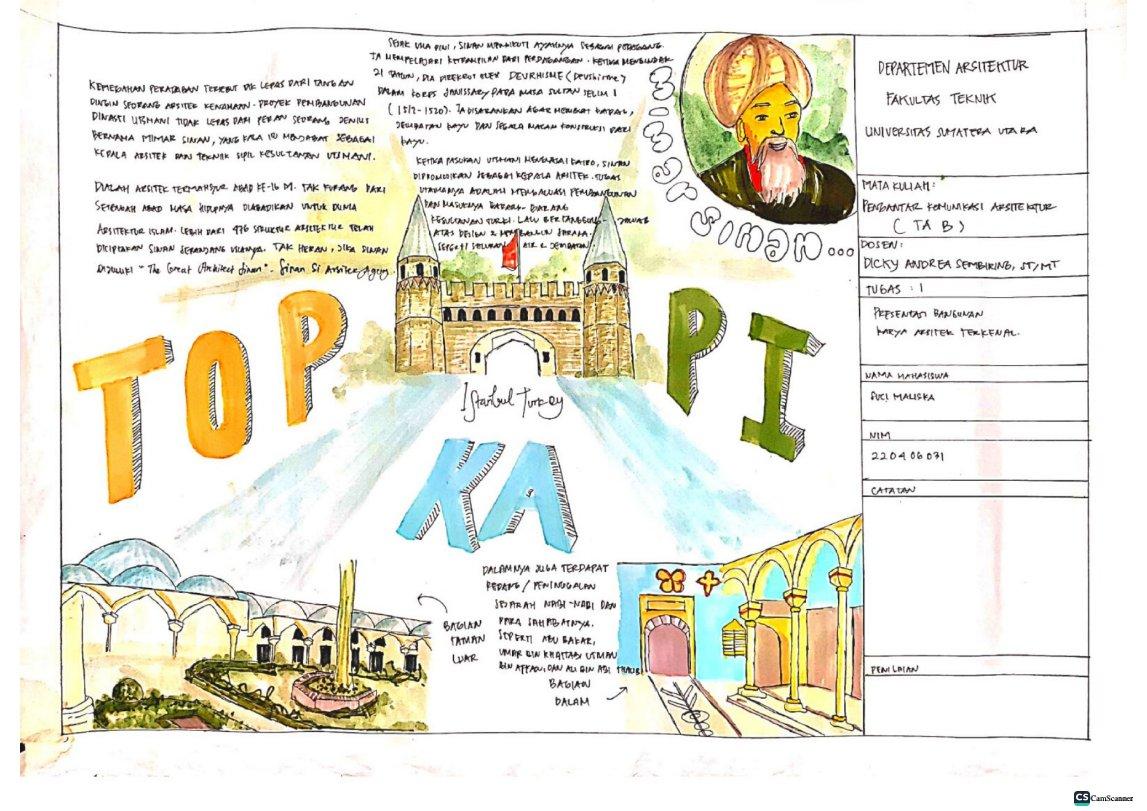 KEMEGAHAN PERADABAN TERSEBUT TAK LEPAS DARI TANGAN
DINGIN SEORANG ARSITEK KENAMAAN. PROYEK PEMBANGUNAN
DINASTI USMANI TIDAK LEPAS DARI PERAN SEORANG JENIUS
BERNAMA MIMAR SINAN, YANG KALA ITU MENJABAT SEBAGAI
KEPALA ARSITEK DAN TEKNIK SIPIL KESULTANAN UTSMANI.
DIALAH ARSITEK TERMASHUR ABAD KE-16 M. TAK KURANG DARI
SETENGAH ABAD MASA HIDUPNYA DIABADIKAN UNTUK DUNIA
ARSITEKTUR ISLAM. LEBIH DARI 476 STRUKTUR ARSITEKTUR TELAH
DICIPTAKAN SINAN SEPANJANG USIANYA. TAK HERAN, JIKA SINAN
DIJULUKI "The Great Architect Sinan". Sinan Si Arsitek Agung
SEJAK USIA DINI, SINAN MENGIKUTI AYAHNYA SEBAGAI PEDAGANG.
IA MEMPELAJARI KETRAMPILAN DARI PERDAGANGAN. KETIKA MENGINJAK
21 TAHUN, DIA DIREKRUT OLEH DEVRHISME (Devshirme)
DALAM KORPS JANISSARY PADA MASA SULTAN SELIM I
(1512-1520). IA DISARANKAN AGAR MEMBUAT KAPAL,
JEMBATAN KAYU DAN SEGALA MACAM KONSTRUKSI DARI
KAYU.
KETIKA PASUKAN UTSMANI MENGUASAI KAIRO, SINAN
DIPROMOSIKAN SEBAGAI KEPALA ARSITEK. TUGAS
UTAMANYA ADALAH MENGALUASI PEMBANGUNAN
DAN MASUKNYA BARANG-BARANG
KESULTANAN TURKI. LALU BERTANGGUNG-JAWAB
ATAS DESIGN & MEMBANGUN SARANA
SEPERTI SALURAN AIR & JEMBATAN
mimar sinan...
TOP KA PI
Istanbul Turkey
BAGIAN
TAMAN
LUAR
DALAMNYA JUGA TERDAPAT
PEDANG / PENINGGALAN
SEJARAH NABI-NABI DAN
PARA SAHABATNYA.
SEPERTI ABU BAKAR,
UMAR BIN KHATTAB, UTSMAN
BIN AFFAN, DAN ALI BIN ABI THALIB
BAGIAN
DALAM
DEPARTEMEN ARSITEKTUR
FAKULTAS TEKNIK
UNIVERSITAS SUMATERA UTARA
MATA KULIAH:
PENGANTAR KOMUNIKASI ARSITEKTUR
(TA B)
DOSEN:
DICKY ANDREA SEMBIRING, ST/MT
TUGAS : 1
PRESENTASI BANGUNAN
KARYA ARSITEK TERKENAL.
NAMA MAHASISWA
SUCI MALISKA
NIM
220406071
CATATAN
PENILAIAN
CS CamScanner